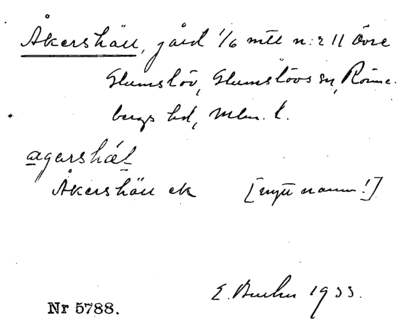 Åkershäll, gård 1/6 mtl n:r 11 Övre
Glumslöv, Glumslövs sn, Rönne-
bergs hd, Mlm. l.
agershäl
Åkershäll ek [nytt namn!]
E. 1933.
Nr 5788.